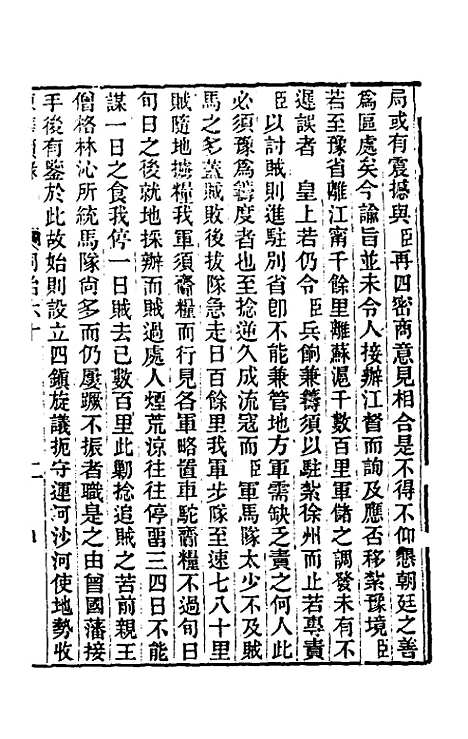 局或有震撼與臣再四密商意見相合是不得不仰懇朝廷之善
為區處矣今諭旨並未令人接辦江督而詢及應否移紮豫境臣
若至豫省離江甯千餘里離蘇滬千數百里軍儲之調發未有不
遲誤者　皇上若仍令臣兵餉兼籌須以駐紮徐州而止若專責
臣以討賊則進駐別省卽不能兼管地方軍需缺乏責之何人此
必須豫為籌度者也至捻逆久成流寇而臣軍馬隊太少不及賊
馬之多蓋賊敗後拔隊急走日百餘里我軍步隊至速七八十里
賊隨地擄糧我軍須齎糧而行見各軍略置車駝齎糧不過旬日
旬日之後就地採辦而賊過處人煙荒涼往往停留三四日不能
謀一日之食我停一日賊去已數百里此勦捻追賊之苦前親王
僧格林沁所統馬隊尙多而仍屢蹶不振者職是之由曾國藩接
手後有鑒於此故始則設立四鎮旋議扼守運河沙河使地勢收
同治六十　二